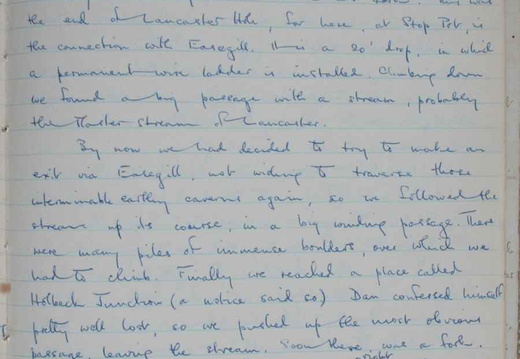 the end of Lancaster Hole, for here, at Stop Pot, is
the connection with Easegill. It is a 20' drop, in which
a permanent wire ladder is installed. Climbing down
we found a big passage with a stream, probably
the Master stream of Lancaster.
By now we had decided to try to make an
exit via Easegill, not wishing to traverse those
interminable earthy caverns again, so we followed the
stream up its course, in a big winding passage. There
were many piles of immense boulders, over which we
had to climb. Finally we reached a place called
Holbeck Junction (a notice said so) Dan confessed himself
pretty well lost, so we pushed up the most obvious
passage, leaving the stream. Soon there was a fork.
right